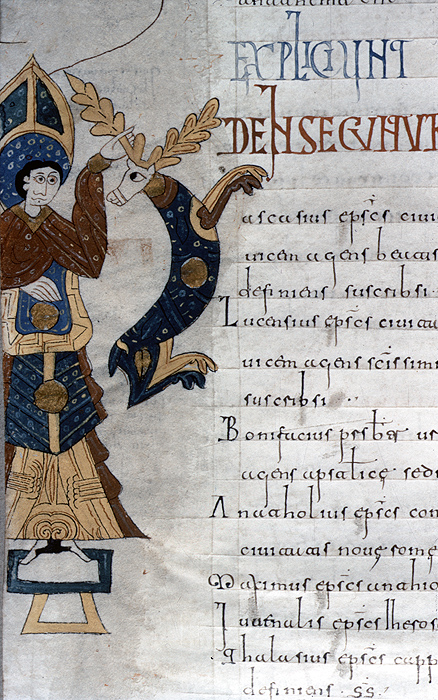 EXPLICIUNT
ascasius epscs civi
vicem agens beatis
definiens suscribsi
Lucensius epscs civitat
vicem agens scissimi
suscribsi
Bonifacius prsbr
agens apsatlice sedi
Anatholius epscs con
civitatis nove rome
Maximus epscs anthio
Iuvenalis epscs iheroso
Thalasius epscs capp
definiens ss